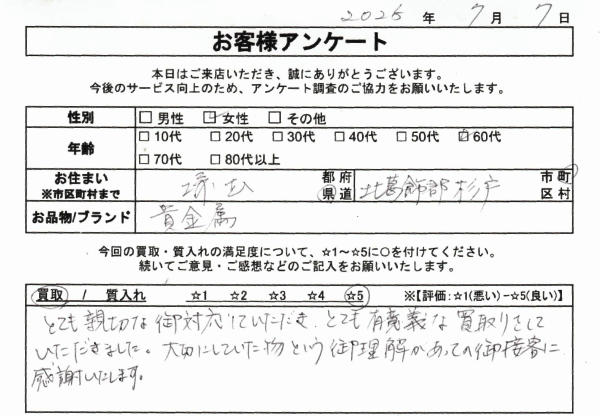 2025 年 7 月 7 日
お客様アンケート
本日はご来店いただき、誠にありがとうございます。
今後のサービス向上のため、アンケート調査のご協力をお願いいたします。
性別 □ 男性 ☑ 女性 □ その他
年齢 □ 10代 □ 20代 □ 30代 □ 40代 □ 50代 ☑ 60代
□ 70代 □ 80代以上
お住まい ※市区町村まで 埼玉 都 府 県 道 北葛飾郡杉戸 市 町 区 村
お品物/ブランド 貴金属
今回の買取・質入れの満足度について、☆1～☆5に○を付けてください。
続いてご意見・ご感想などのご記入をお願いいたします。
買取 / 質入れ ☆1 ☆2 ☆3 ☆4 ☆5 ※【評価:☆1(悪い)-☆5(良い)】
とても親切な御対応していただき、とても有意義な買取りをして
いただきました。大切にしていた物という御理解があっての御接客に
感謝いたします。